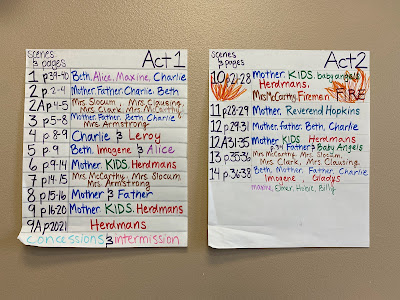 scenes
& pages
Act 1
1 p39-40 Beth, Alice, Maxine, Charlie
2 p 2-4 Mother, Father, Charlie, Beth
2A p4-5 Mrs. Slocum, Mrs. Clausing,
Mrs. Clark, Mrs. McCarthy
3 p5-8 Mother, Father, Beth, Charlie
Mrs. Armstrong
4 p 8-9 Charlie & Leroy
5 p 9 Beth, Imogene & Alice
6 p9-14 Mother, KIDS, Herdmans
7 p14-15 Mrs McCarthy, Mrs Slocum
Mrs. Armstrong
8 p15-16 Mother & Father
9 p16-20 Mother, KIDS, Herdmans
9A p2021 Herdmans
concessions & intermission
scenes
& pages
Act 2
10 p21-28 Mother, KIDS, baby angels
Herdmans,
Mrs McCarthy, Firemen FIRE
11 p28-29 Mother, Reverend Hopkins
12 p29-31 Mother, Father, Beth, Charlie
12A 31-35 Mother KIDS Herdmans
p.34 Father & Baby Angels
13 p.35-36 Mrs McCarthy, Mrs. Slocum,
Mrs. Clark, Mrs. Clausing
14 p36-38 Beth, Mother, Father, Charlie
Imogene, Gladys
maxine, Elmer, Hobie, Billy